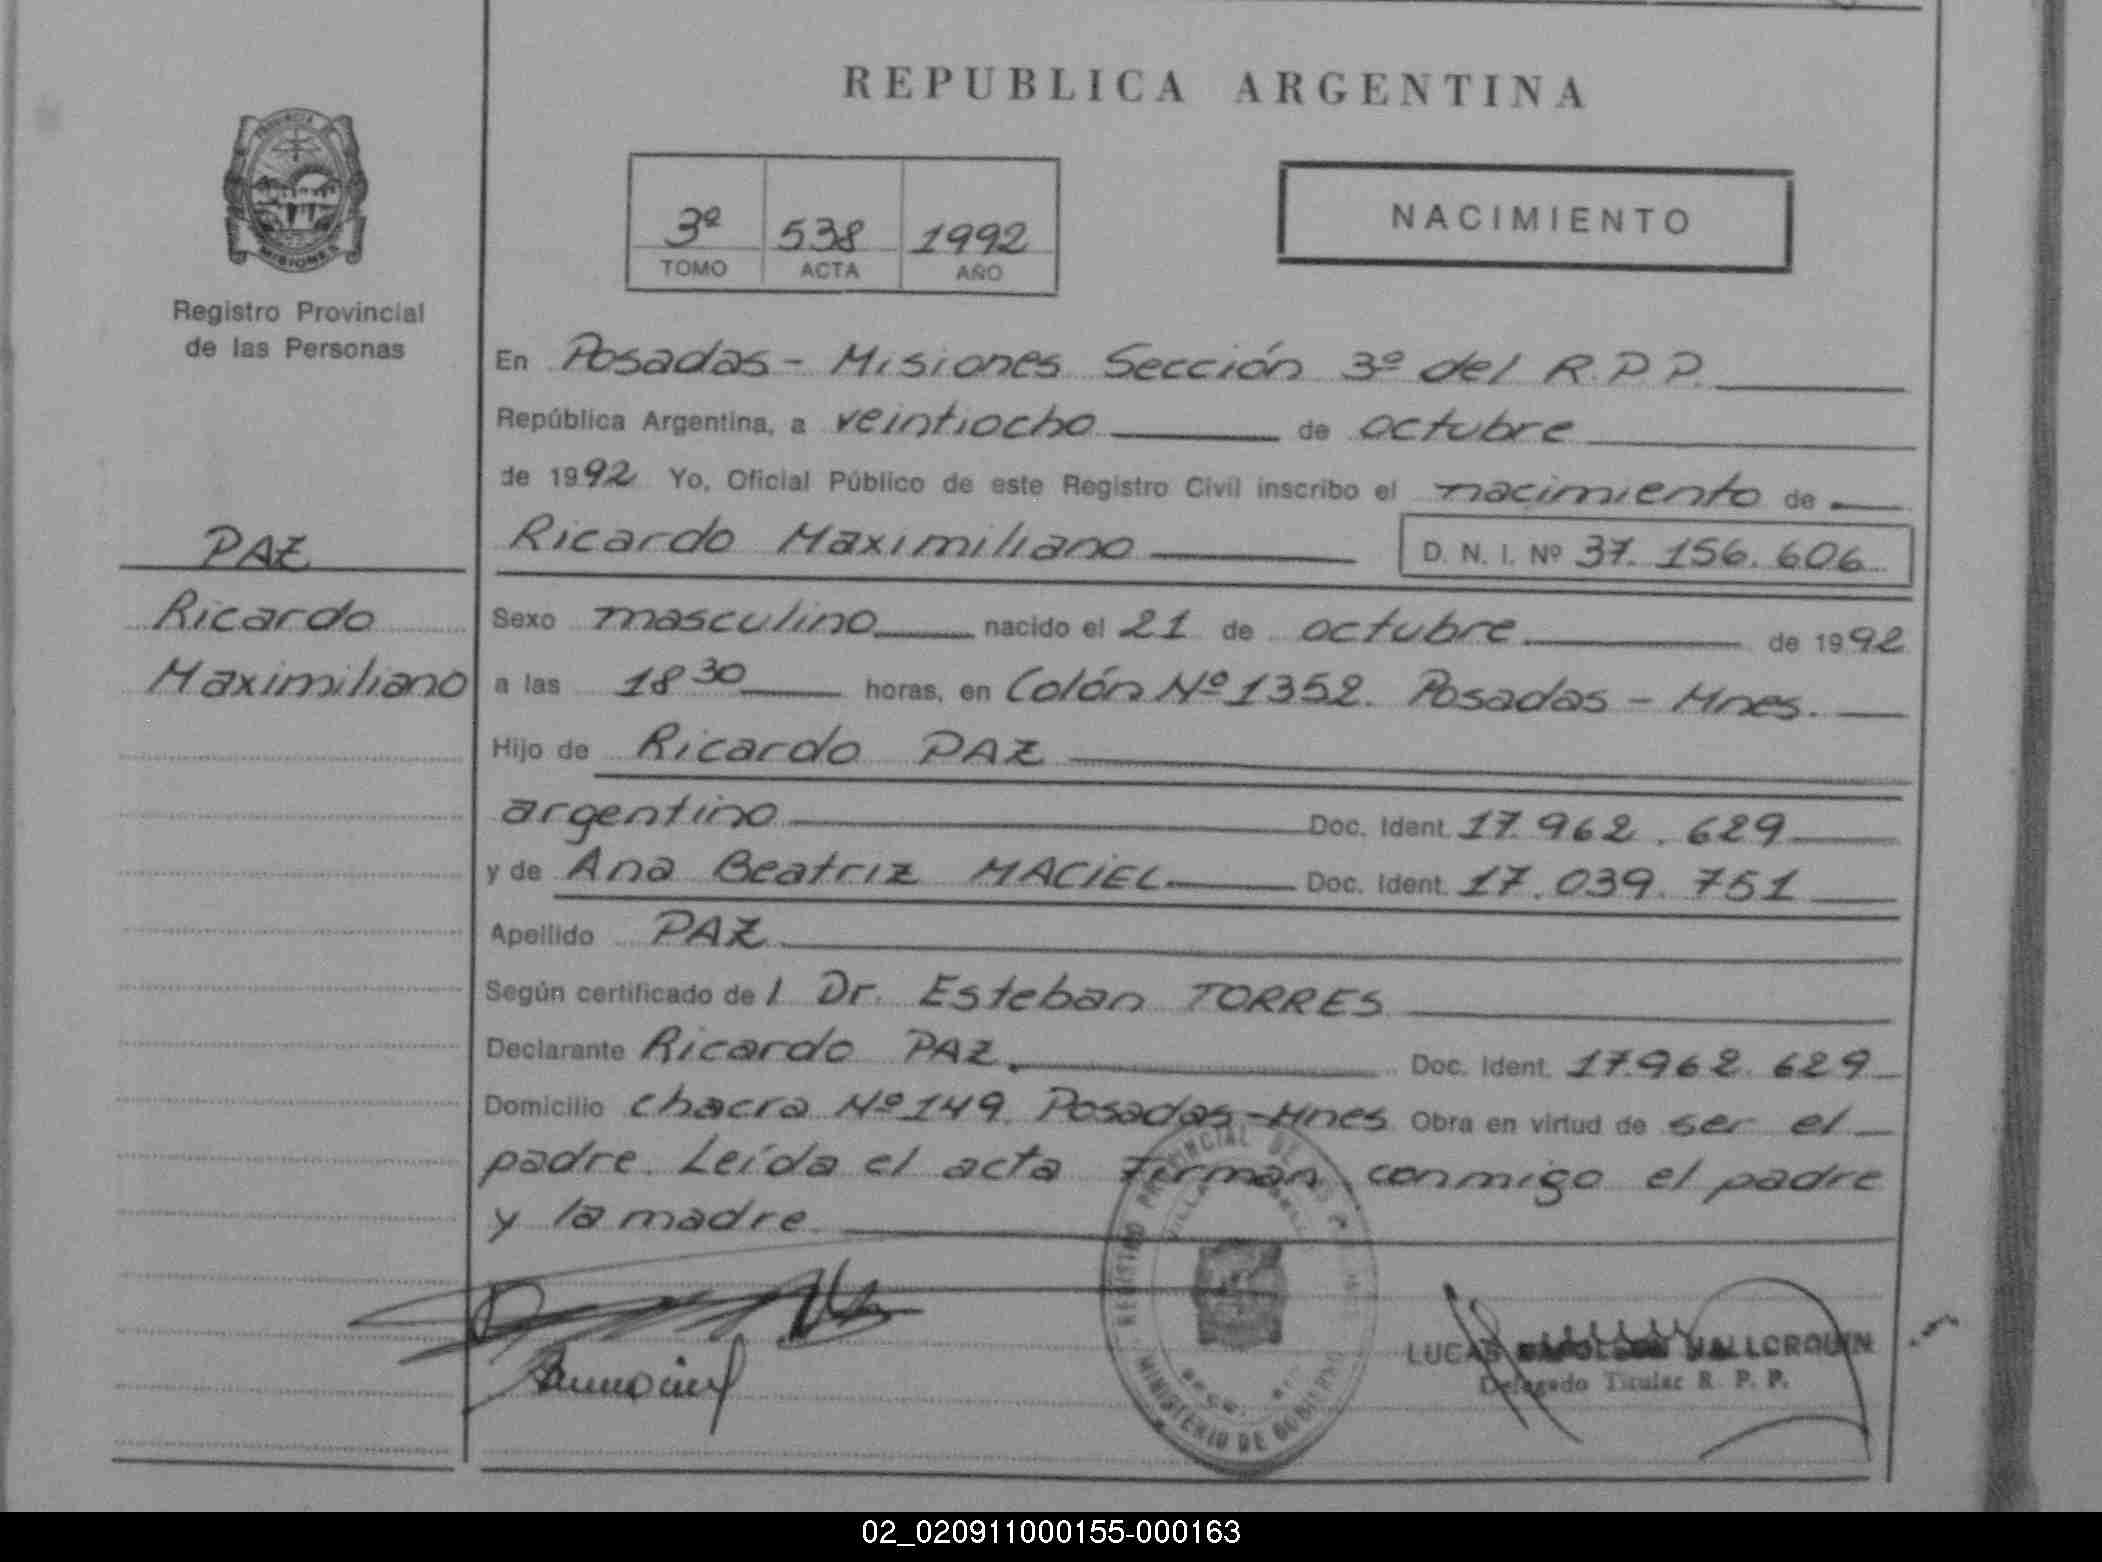 REPUBLICA ARGENTINA
PROVINCIA DE
MISIONES
Registro Provincial
de las Personas
3º 538 1992
TOMO ACTA AÑO
NACIMIENTO
En Posadas - Misiones Sección 3º del R.P.P.
República Argentina, a veintiocho de octubre
de 1992 Yo, Oficial Público de este Registro Civil inscribo el nacimiento de
Ricardo Maximiliano D. N. I. Nº 37.156.606
PAZ
Ricardo
Maximiliano
Sexo masculino nacido el 21 de octubre de 1992
a las 18 30 horas, en Colón Nº 1352. Posadas - Mnes.
Hijo de Ricardo PAZ
argentino Doc. Ident. 17.962.629
y de Ana Beatriz MACIEL Doc. Ident. 17.039.751
Apellido PAZ
Según certificado de l Dr. Esteban TORRES
Declarante Ricardo PAZ. Doc. Ident. 17.962.629
Domicilio chacra Nº 149. Posadas - Mnes Obra en virtud de ser el
padre. Leída el acta firman conmigo el padre
y la madre
REGISTRO PROVINCIAL DE LAS
MINISTERIO DE GOBIERNO
LUCAS MALLORQUIN
Delegado Titular R. P. P.
02_020911000155-000163